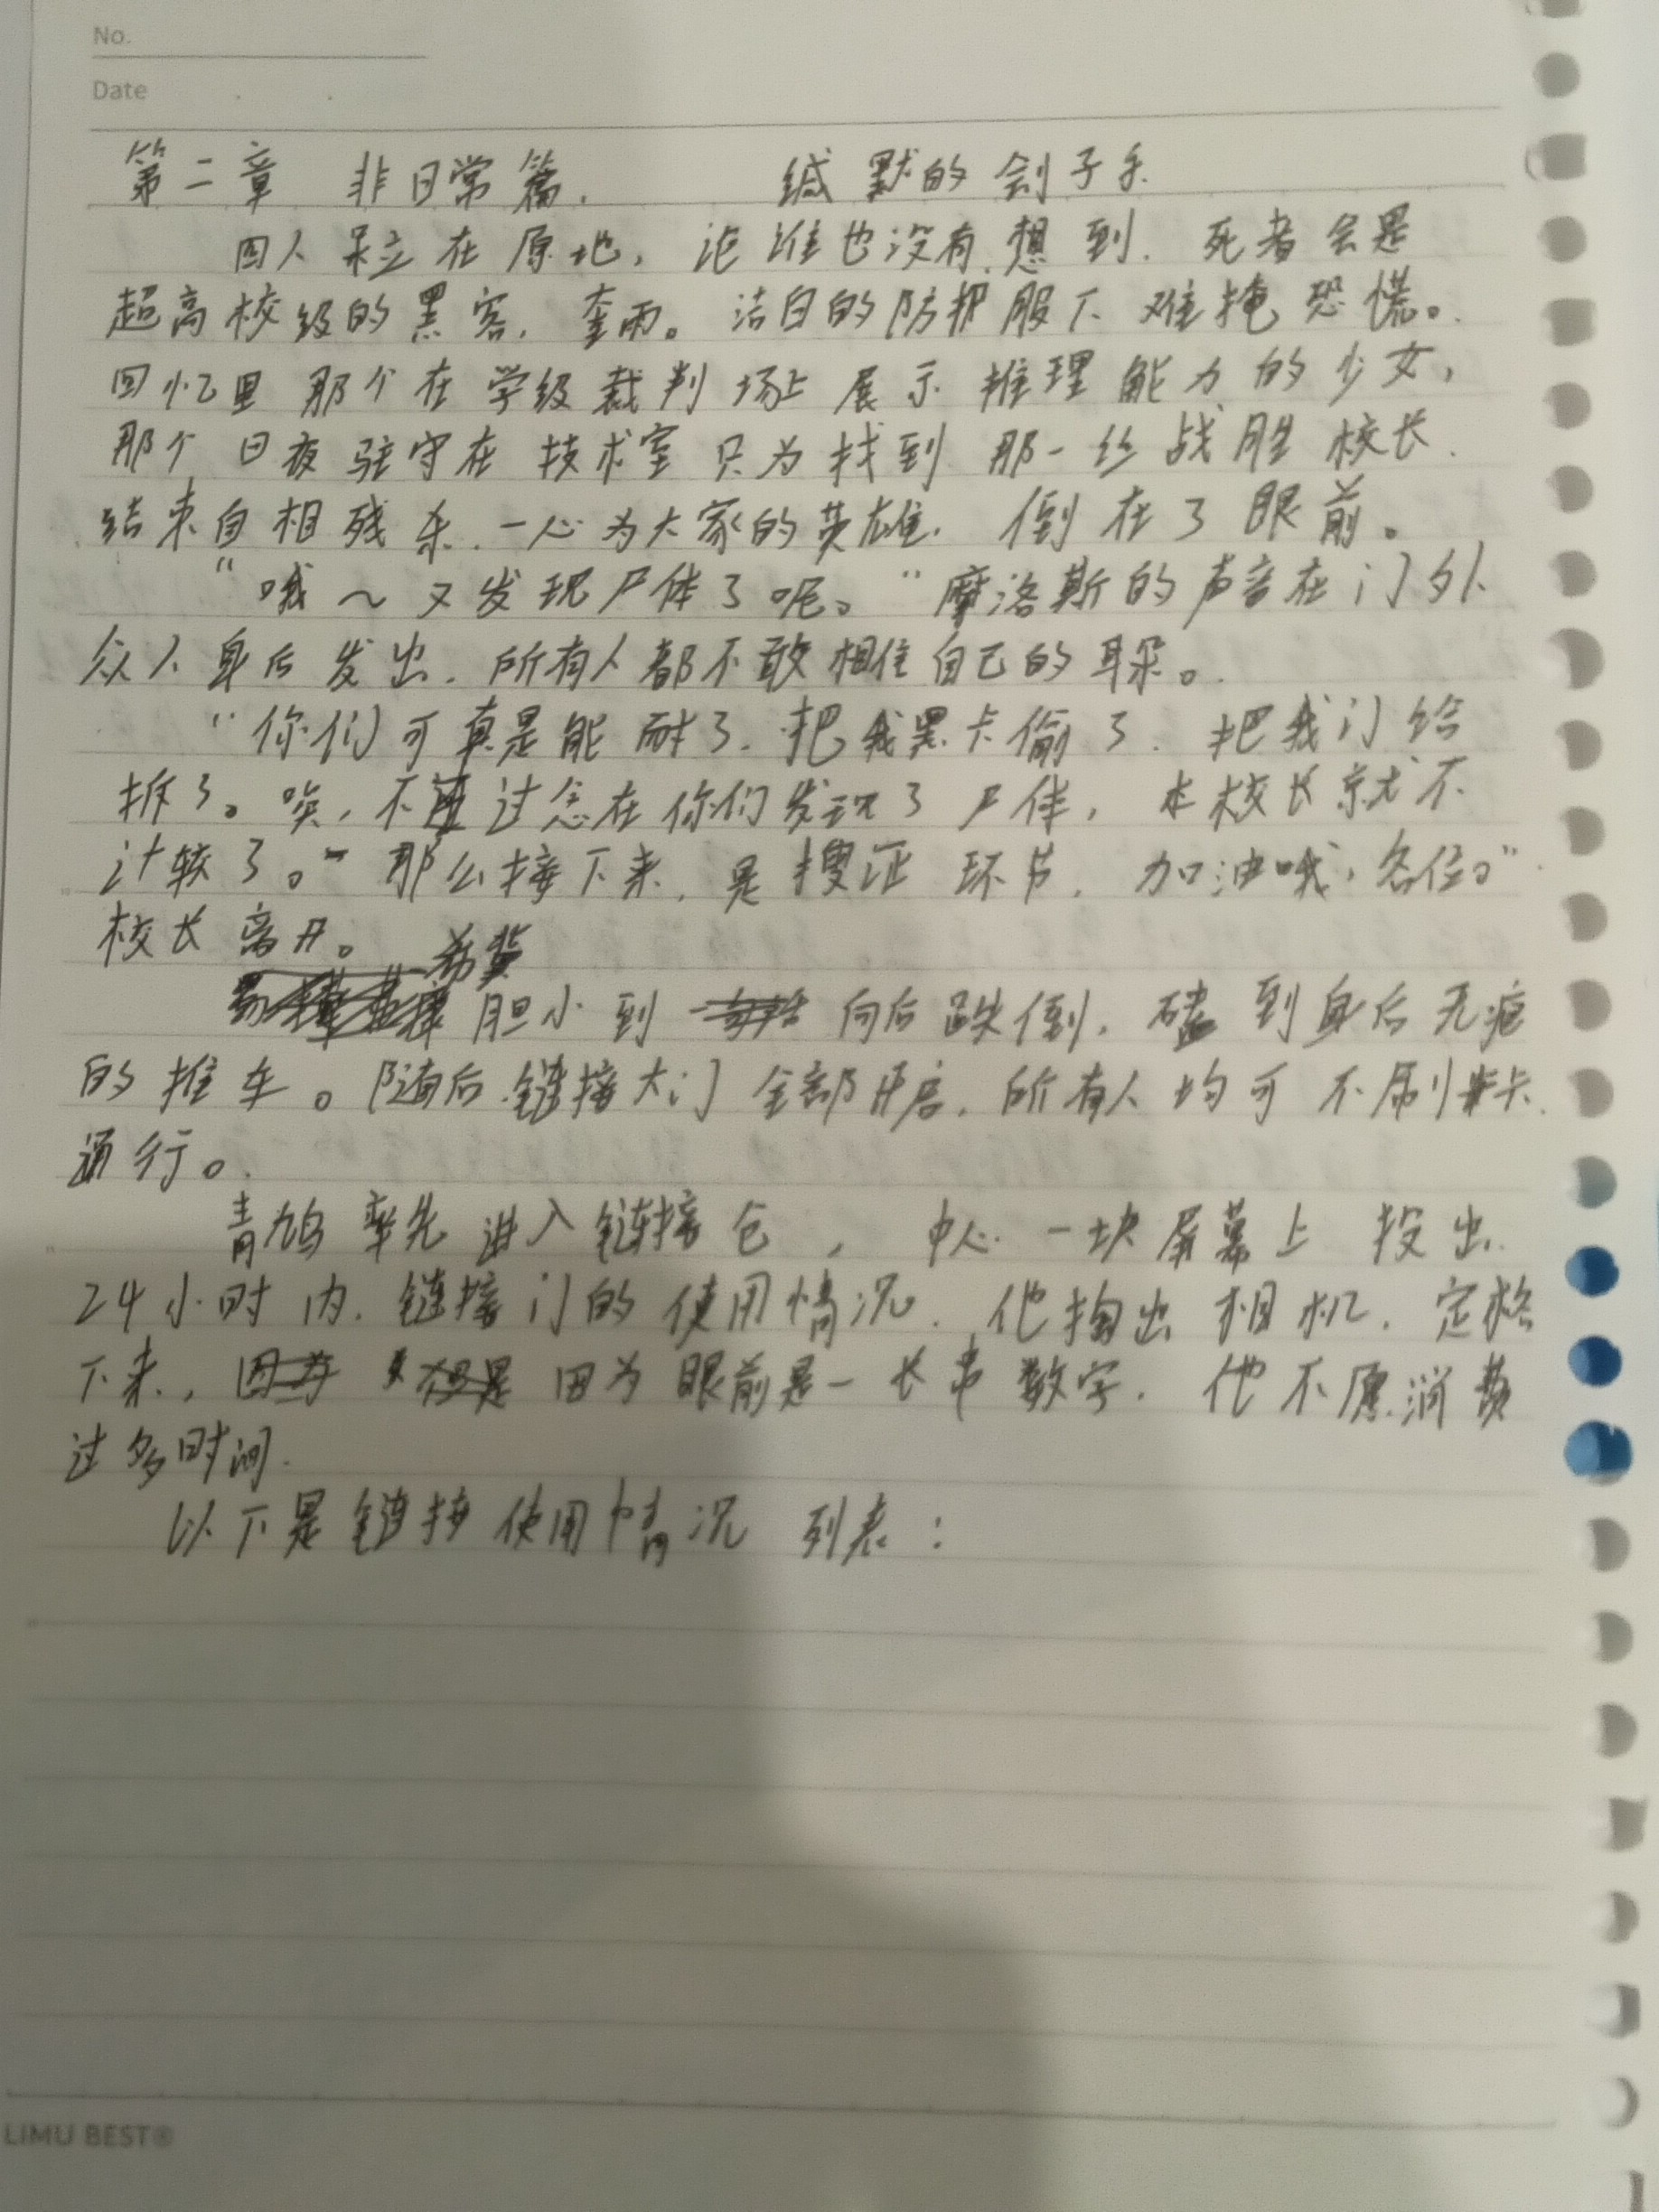 No.
Date
第二章 非日常篇. 缄默的刽子手
四人呆立在原地, 论谁也没有想到. 死者会是
超高校级的黑客, 奎雨。洁白的防护服下难掩恐慌。
回忆里那个在学级裁判场上展示推理能力的少女,
那个日夜驻守在技术室只为找到那一丝战胜校长
结束自相残杀. 一心为大家的英雄. 倒在了眼前。
“哦~又发现尸体了呢。“摩洛斯的声音在门外
众人身后发出. 所有人都不敢相信自己的耳朵。
“你们可真是能耐了. 把我黑卡偷了. 把我门给
拆了。唉, 不过念在你们发现了尸体, 本校长就不
计较了。” 那么接下来, 是搜证环节. 加油哦, 各位。”
校长离开。
希冀
胆小到 向后跌倒. 磕到身后无痕
的推车。随后链接大门全部开启. 所有人均可不刷卡
通行。
青鸠率先进入链接仓, 中心一块屏幕上投出
24小时内. 链接门的使用情况. 他掏出相机. 定格
下来, 因为眼前是一长串数字. 他不愿消费
过多时间.
以下是链接使用情况列表:
LIMU BEST®